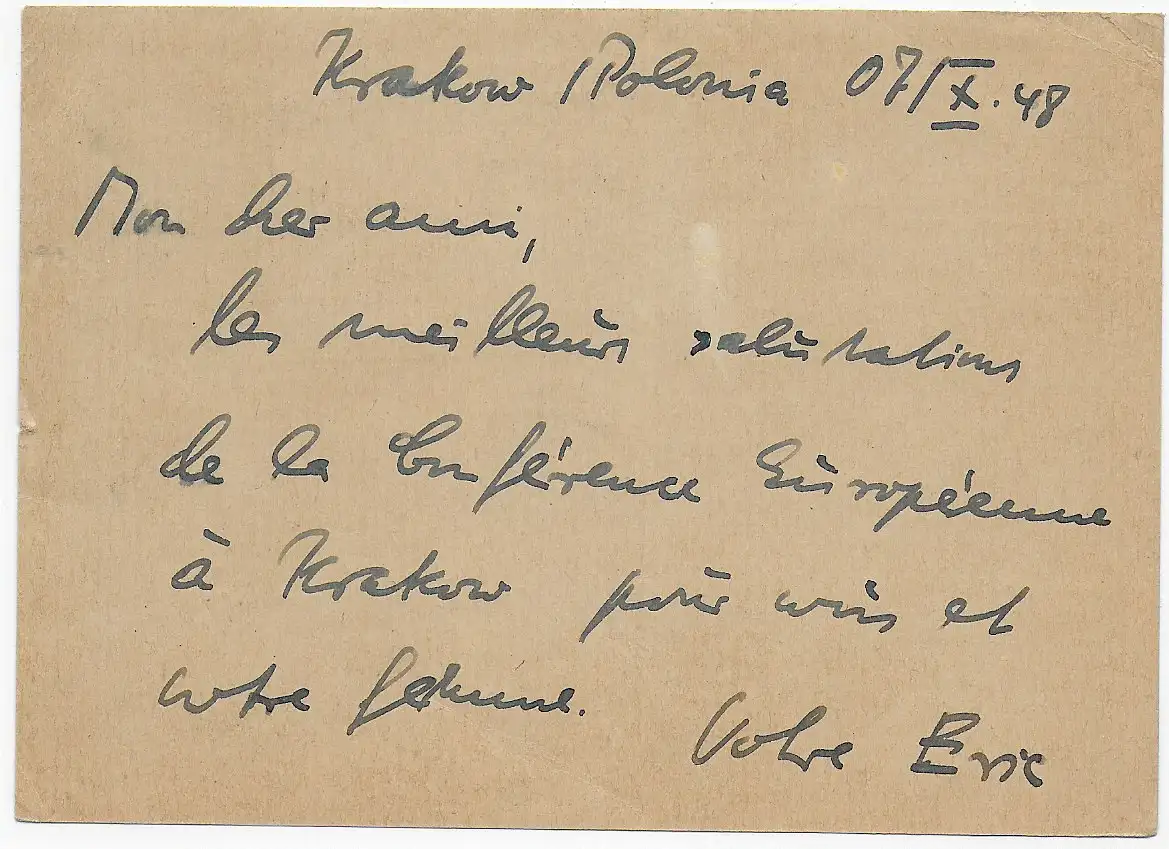 Krakow /Polonia 07/X.48
Mon cher ami,
les meilleurs salutations
de la Conférence Européenne
à Krakow pour vous et
votre femme.
Votre Eric